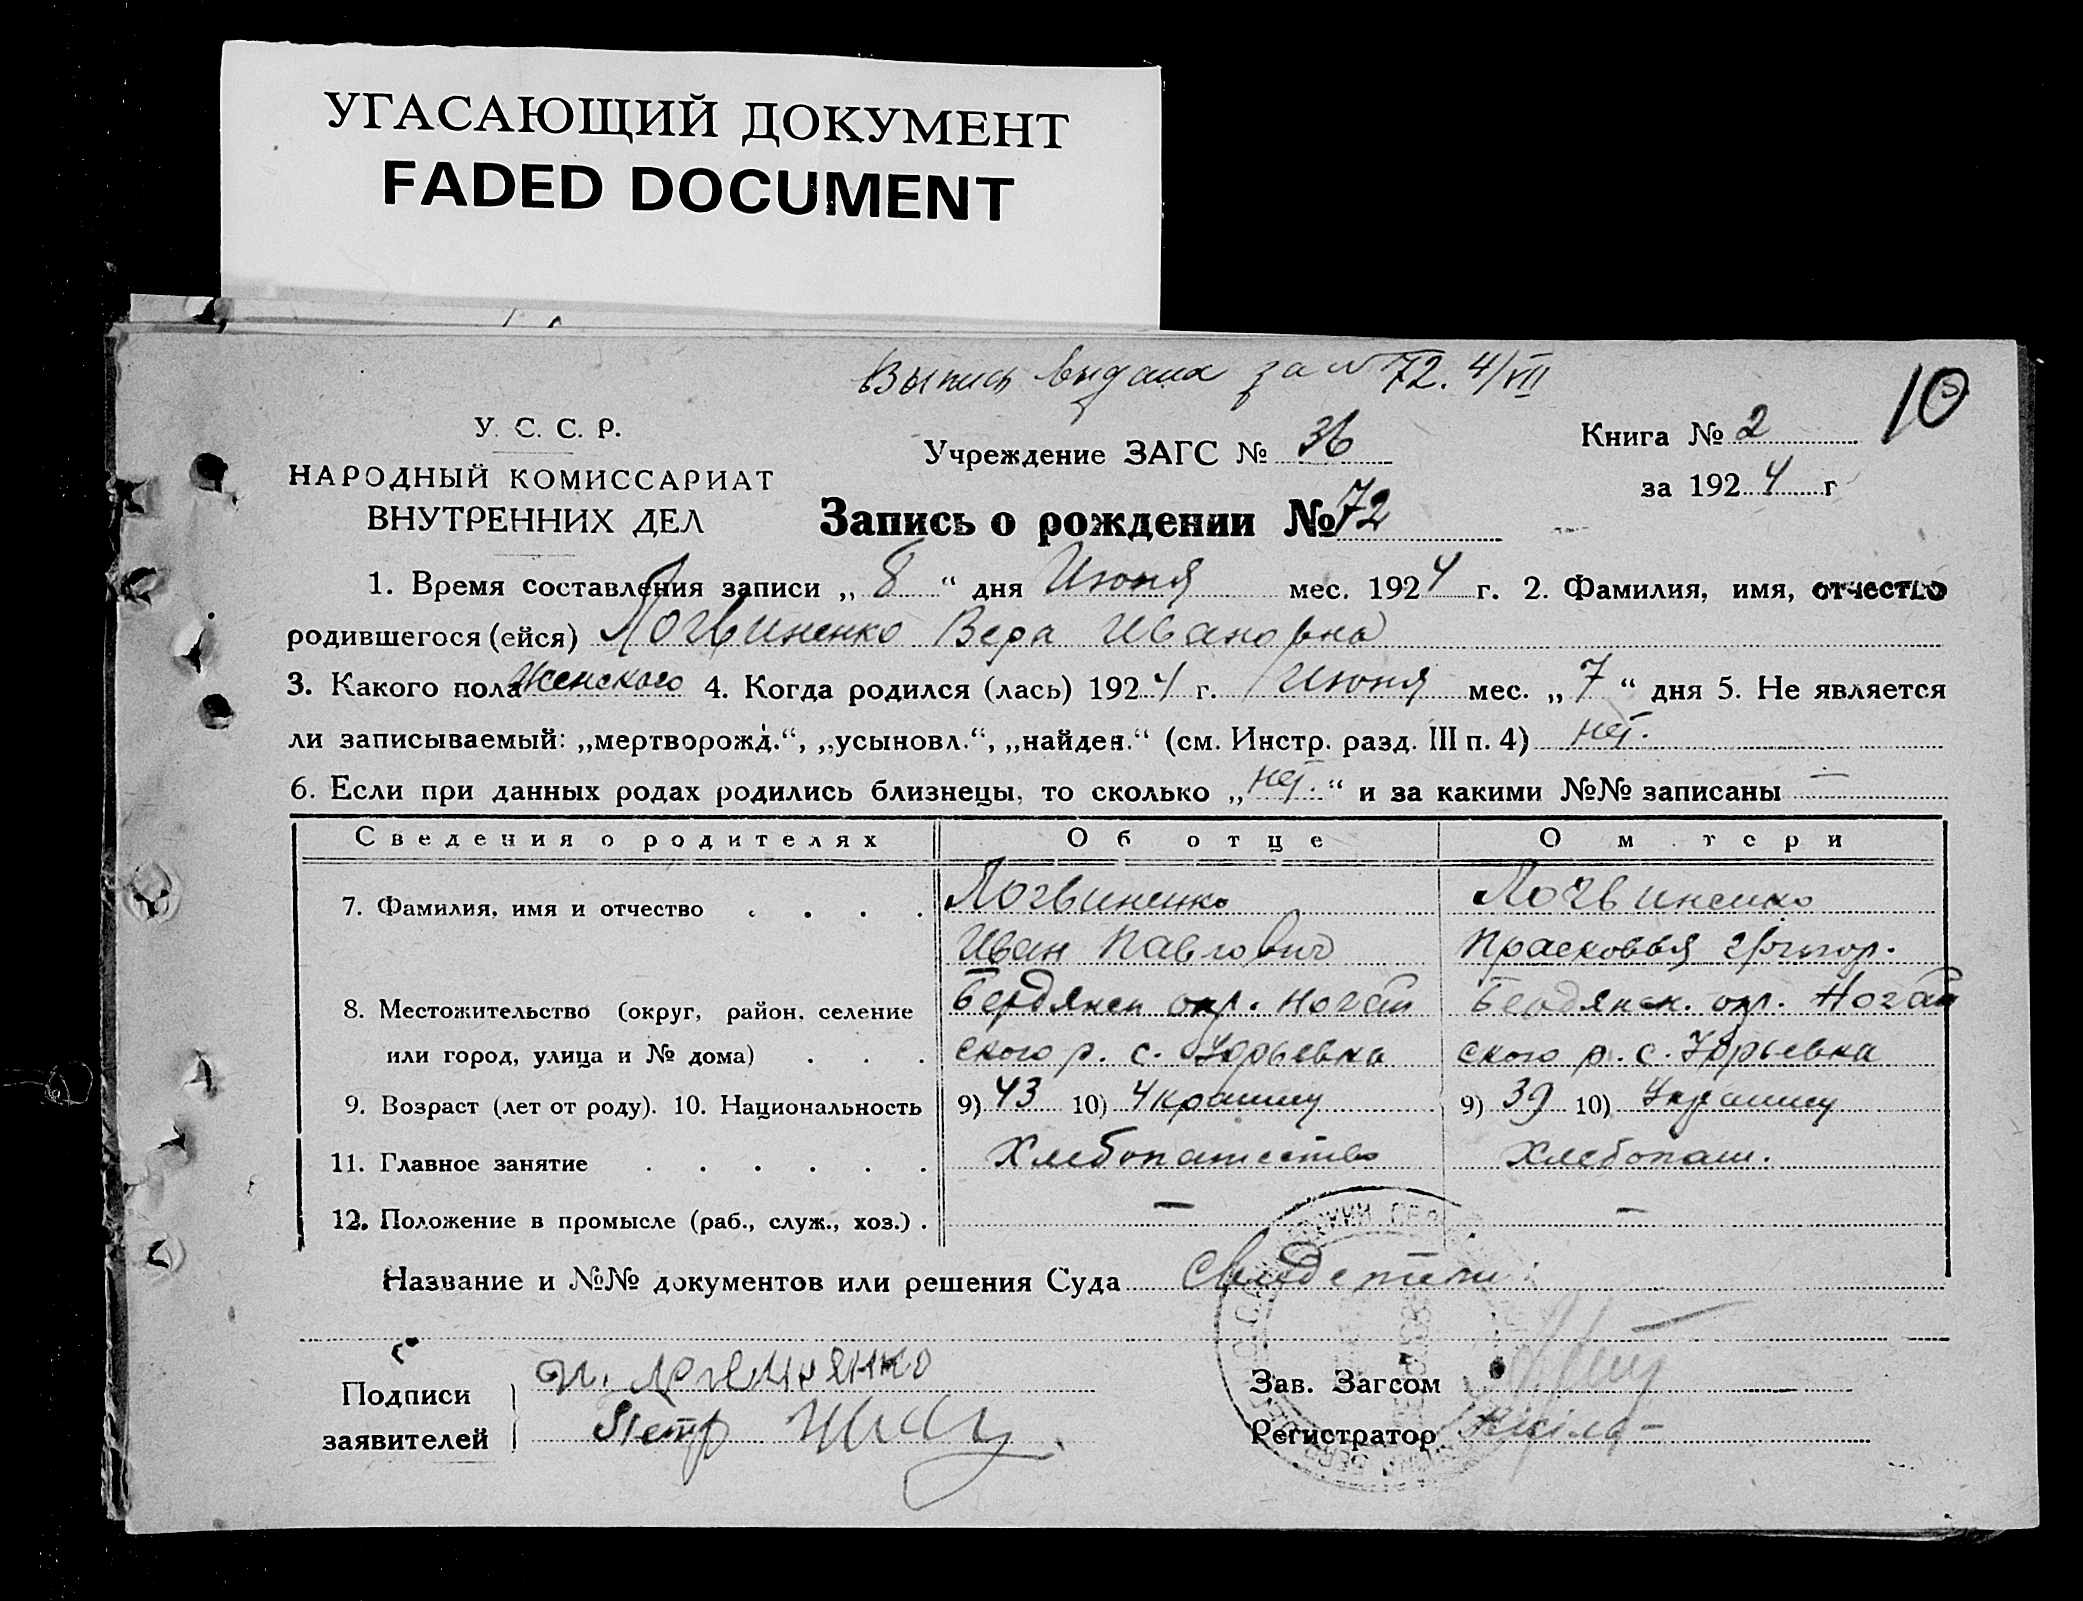 УГАСАЮЩИЙ ДОКУМЕНТ
FADED DOCUMENT
Выпись выдана за № 72. 4/VII
10
У. С. С. Р.
НАРОДНЫЙ КОМИССАРИАТ
ВНУТРЕННИХ ДЕЛ
Учреждение ЗАГС № 36
Книга № 2
за 1924 г
Запись о рождении № 72
1. Время составления записи „ 8 “ дня Июня мес. 1924 г. 2. Фамилия, имя, отчество
родившегося (ейся) Логвиненко Вера Ивановна
3. Какого пола Женского 4. Когда родился (лась) 1924 г. Июня мес. „ 7 “ дня 5. Не является
ли записываемый: „мертворожд.“, „усыновл.“, „найден.“ (см. Инстр. разд. III п. 4) нет.
6. Если при данных родах родились близнецы, то сколько „ нет. “ и за какими №№ записаны —
Сведения о родителях Об отце О м тери
7. Фамилия, имя и отчество . . . . Логвиненко Логвиненко
Иван Павлович Прасковья Григор.
8. Местожительство (округ, район, селение Бердянск окр. Ногай Бердянск. окр. Ногай
или город, улица и № дома) . . . ского р. с. Юрьевка ского р. с. Юрьевка
9. Возраст (лет от роду). 10. Национальность 9) 43 10) 9) 39 10)
11. Главное занятие . . . . . . Хлебопашество Хлебопаш.
12. Положение в промысле (раб., служ., хоз.) . — —
Название и №№ документов или решения Суда Свидетели:
Подписи
заявителей
Петр
Зав. Загсом
Регистратор